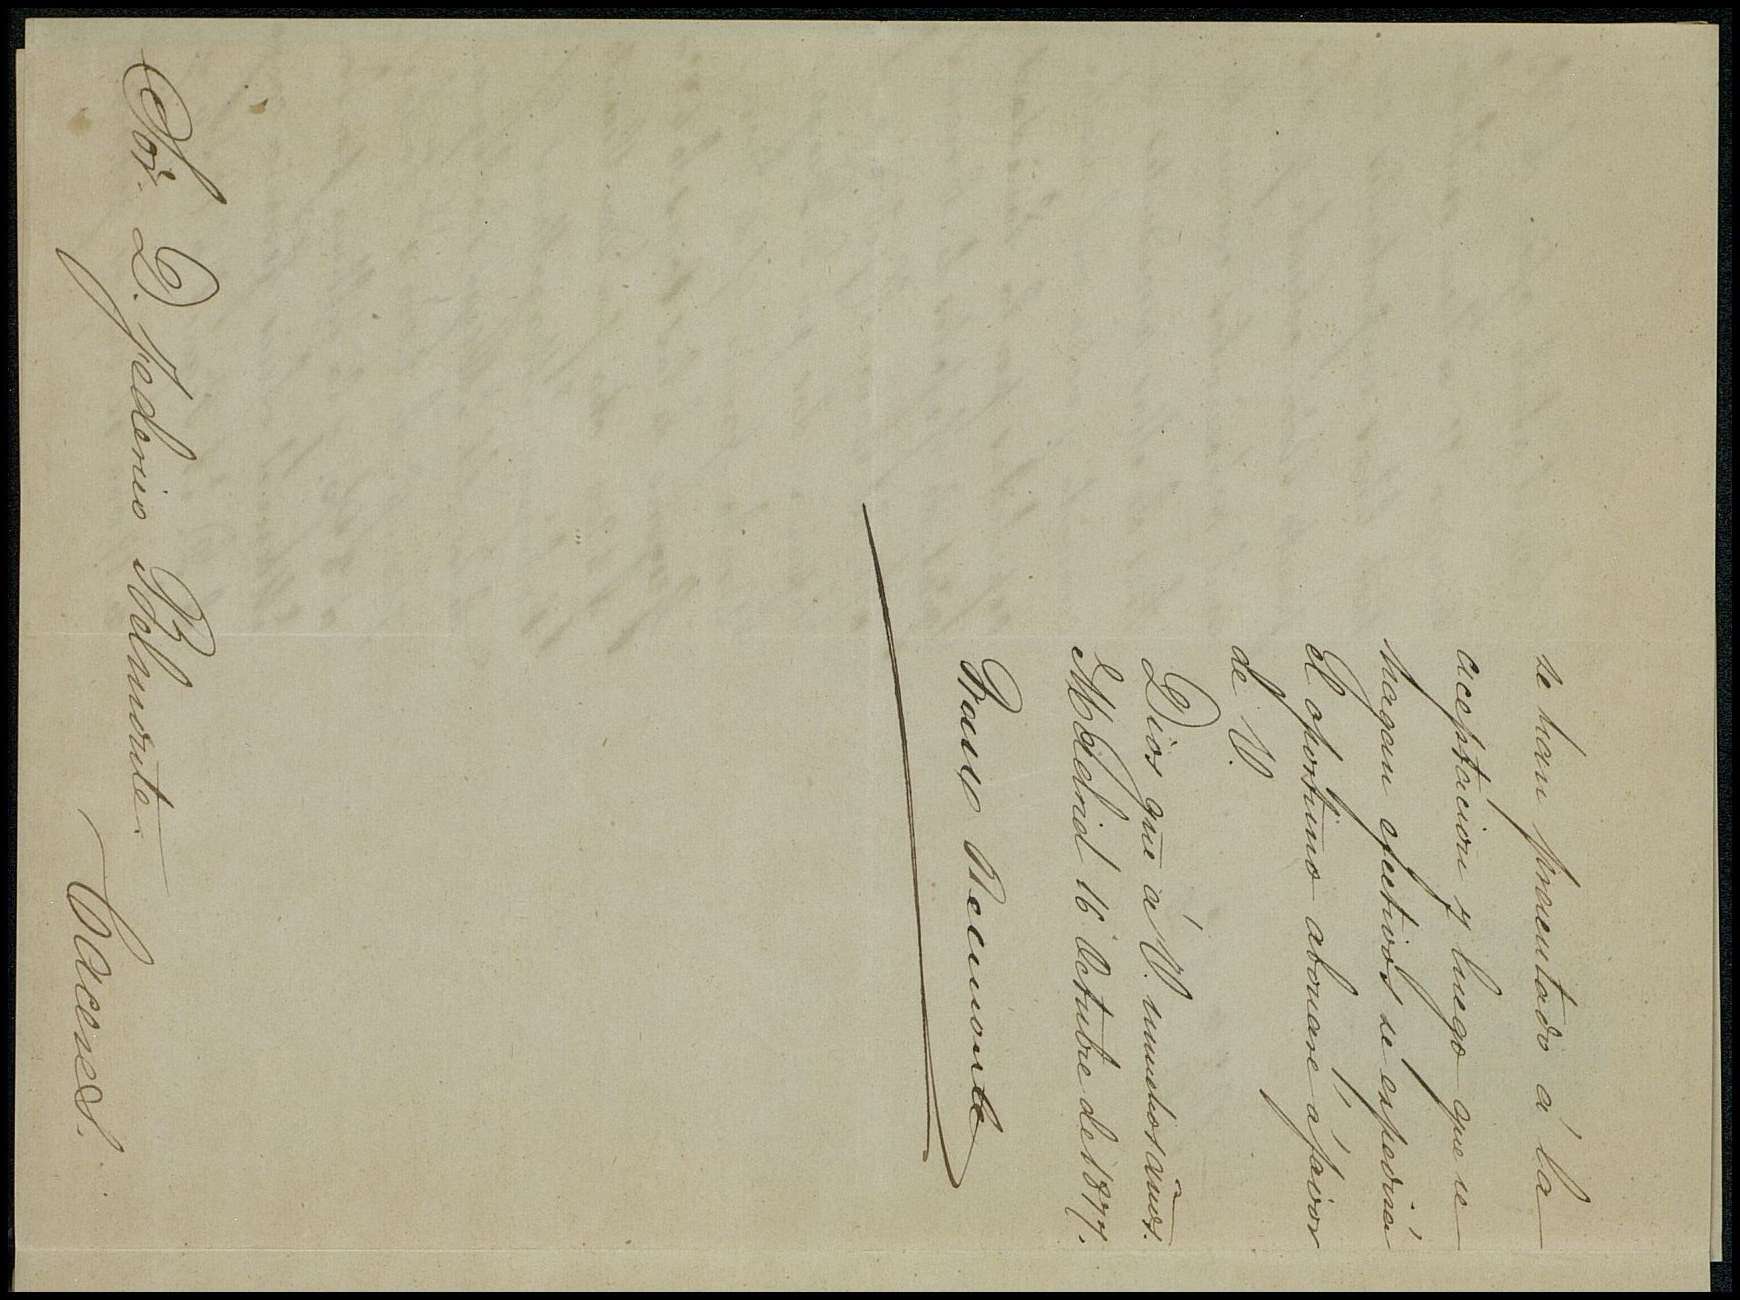 se han presentado á la
aceptacion y luego que se
hagan efectivos se expedirá
el oportuno abonaré á favor
de V.
Dios gue á V. muchos años.
Madrid 16 Octubre de 1877.
Sor. D. Federico Belmonte.
Caceres.